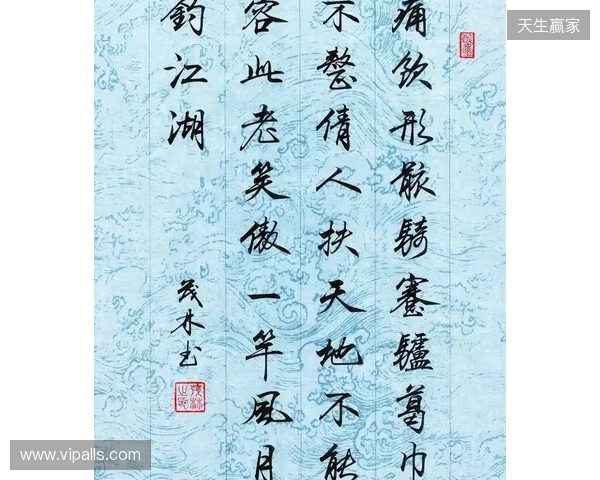 痛飲形骸騎蹇驢葛巾
不整倩人扶天地不能
容此老笑傲一竿風月
釣江湖
茂林书
天生赢家
www.vipalls.com